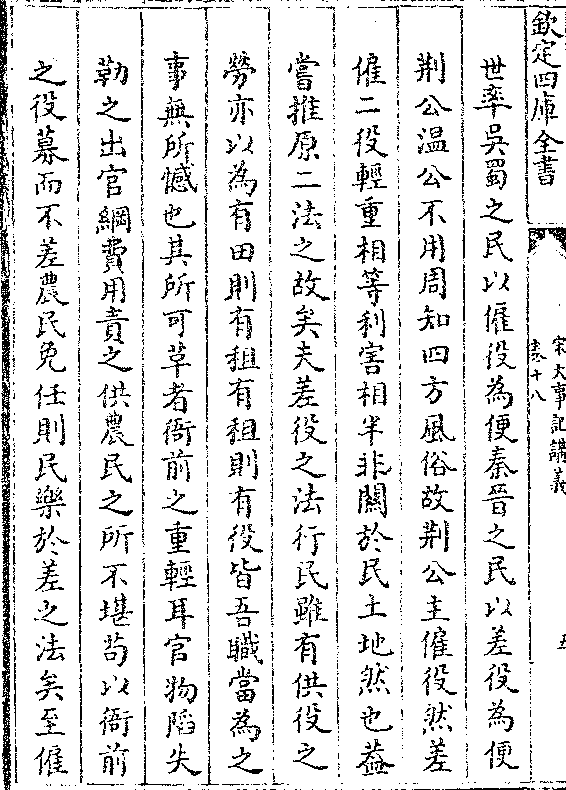 欽定四庫全書
宋大事記講義
卷十八
五
世率吳蜀之民以僱役為便秦晉之民以差役為便
荆公温公不用周知四方風俗故荆公主僱役然差
僱二役輕重相等利害相半非關於民土地然也葢
嘗推原二法之故矣夫差役之法行民雖有供役之
勞亦以為有田則有租有租則有役皆吾職當為之
事無所憾也其所可革者衙前之重輕耳官物陷失
勒之出官綱費用責之供農民之所不堪苟以衙前
之役募而不差農民免任則民樂於差之法矣至僱